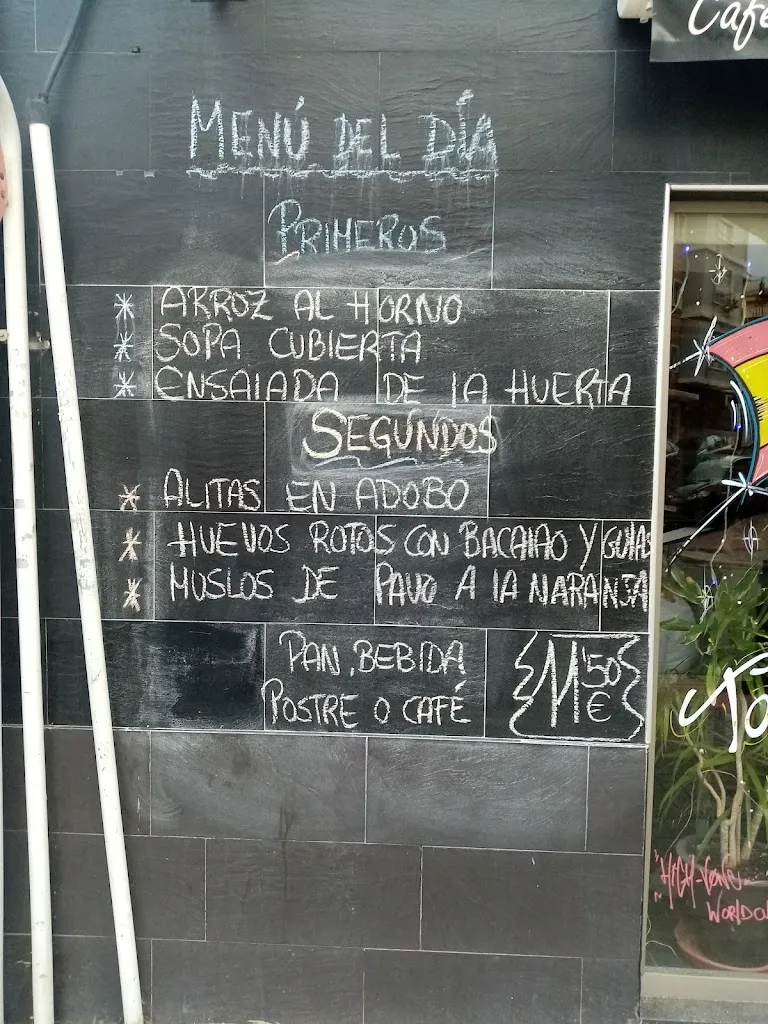 Café
MENÚ DEL DÍA
PRIMEROS
* ARROZ AL HORNO
* SOPA CUBIERTA
* ENSALADA DE LA HUERTA
SEGUNDOS
* ALITAS EN ADOBO
* HUEVOS ROTOS CON BACALAO Y GULAS
* MUSLOS DE PAVO A LA NARANJA
PAN, BEBIDA,
POSTRE O CAFÉ
11'50 €
To
"HIGH-
WORLD